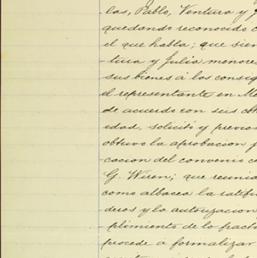 las, Pablo, Ventura y J
quedando reconocido c
el que habla; que sien
tura y Julia menores
sus bienes á los consig
el representante en Me
de acuerdo con sus ob
edad, solicitó y previo
obtuvo la aprobacion j
cacion del convenio c
G. Wiren; que reunida
como albacea la ratifi
deros y la autorizacion
plimiento de lo pact
procede a formalizar